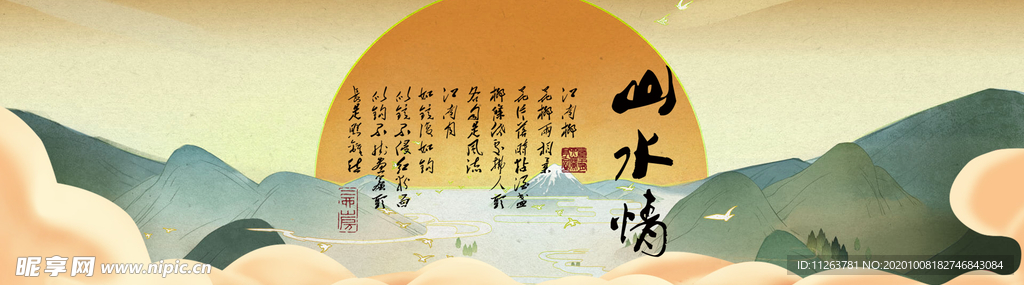 山水情
江南柳
花柳兩相柔
花片落時黏酒盞
柳條低處拂人頭
各自是風流
江南月
如鏡復如鉤
似鏡不侵紅粉面
似鉤不掛畫簾頭
長是照離愁
昵享网 www.nipic.cn
ID:11263781 NO:20201008182746843084